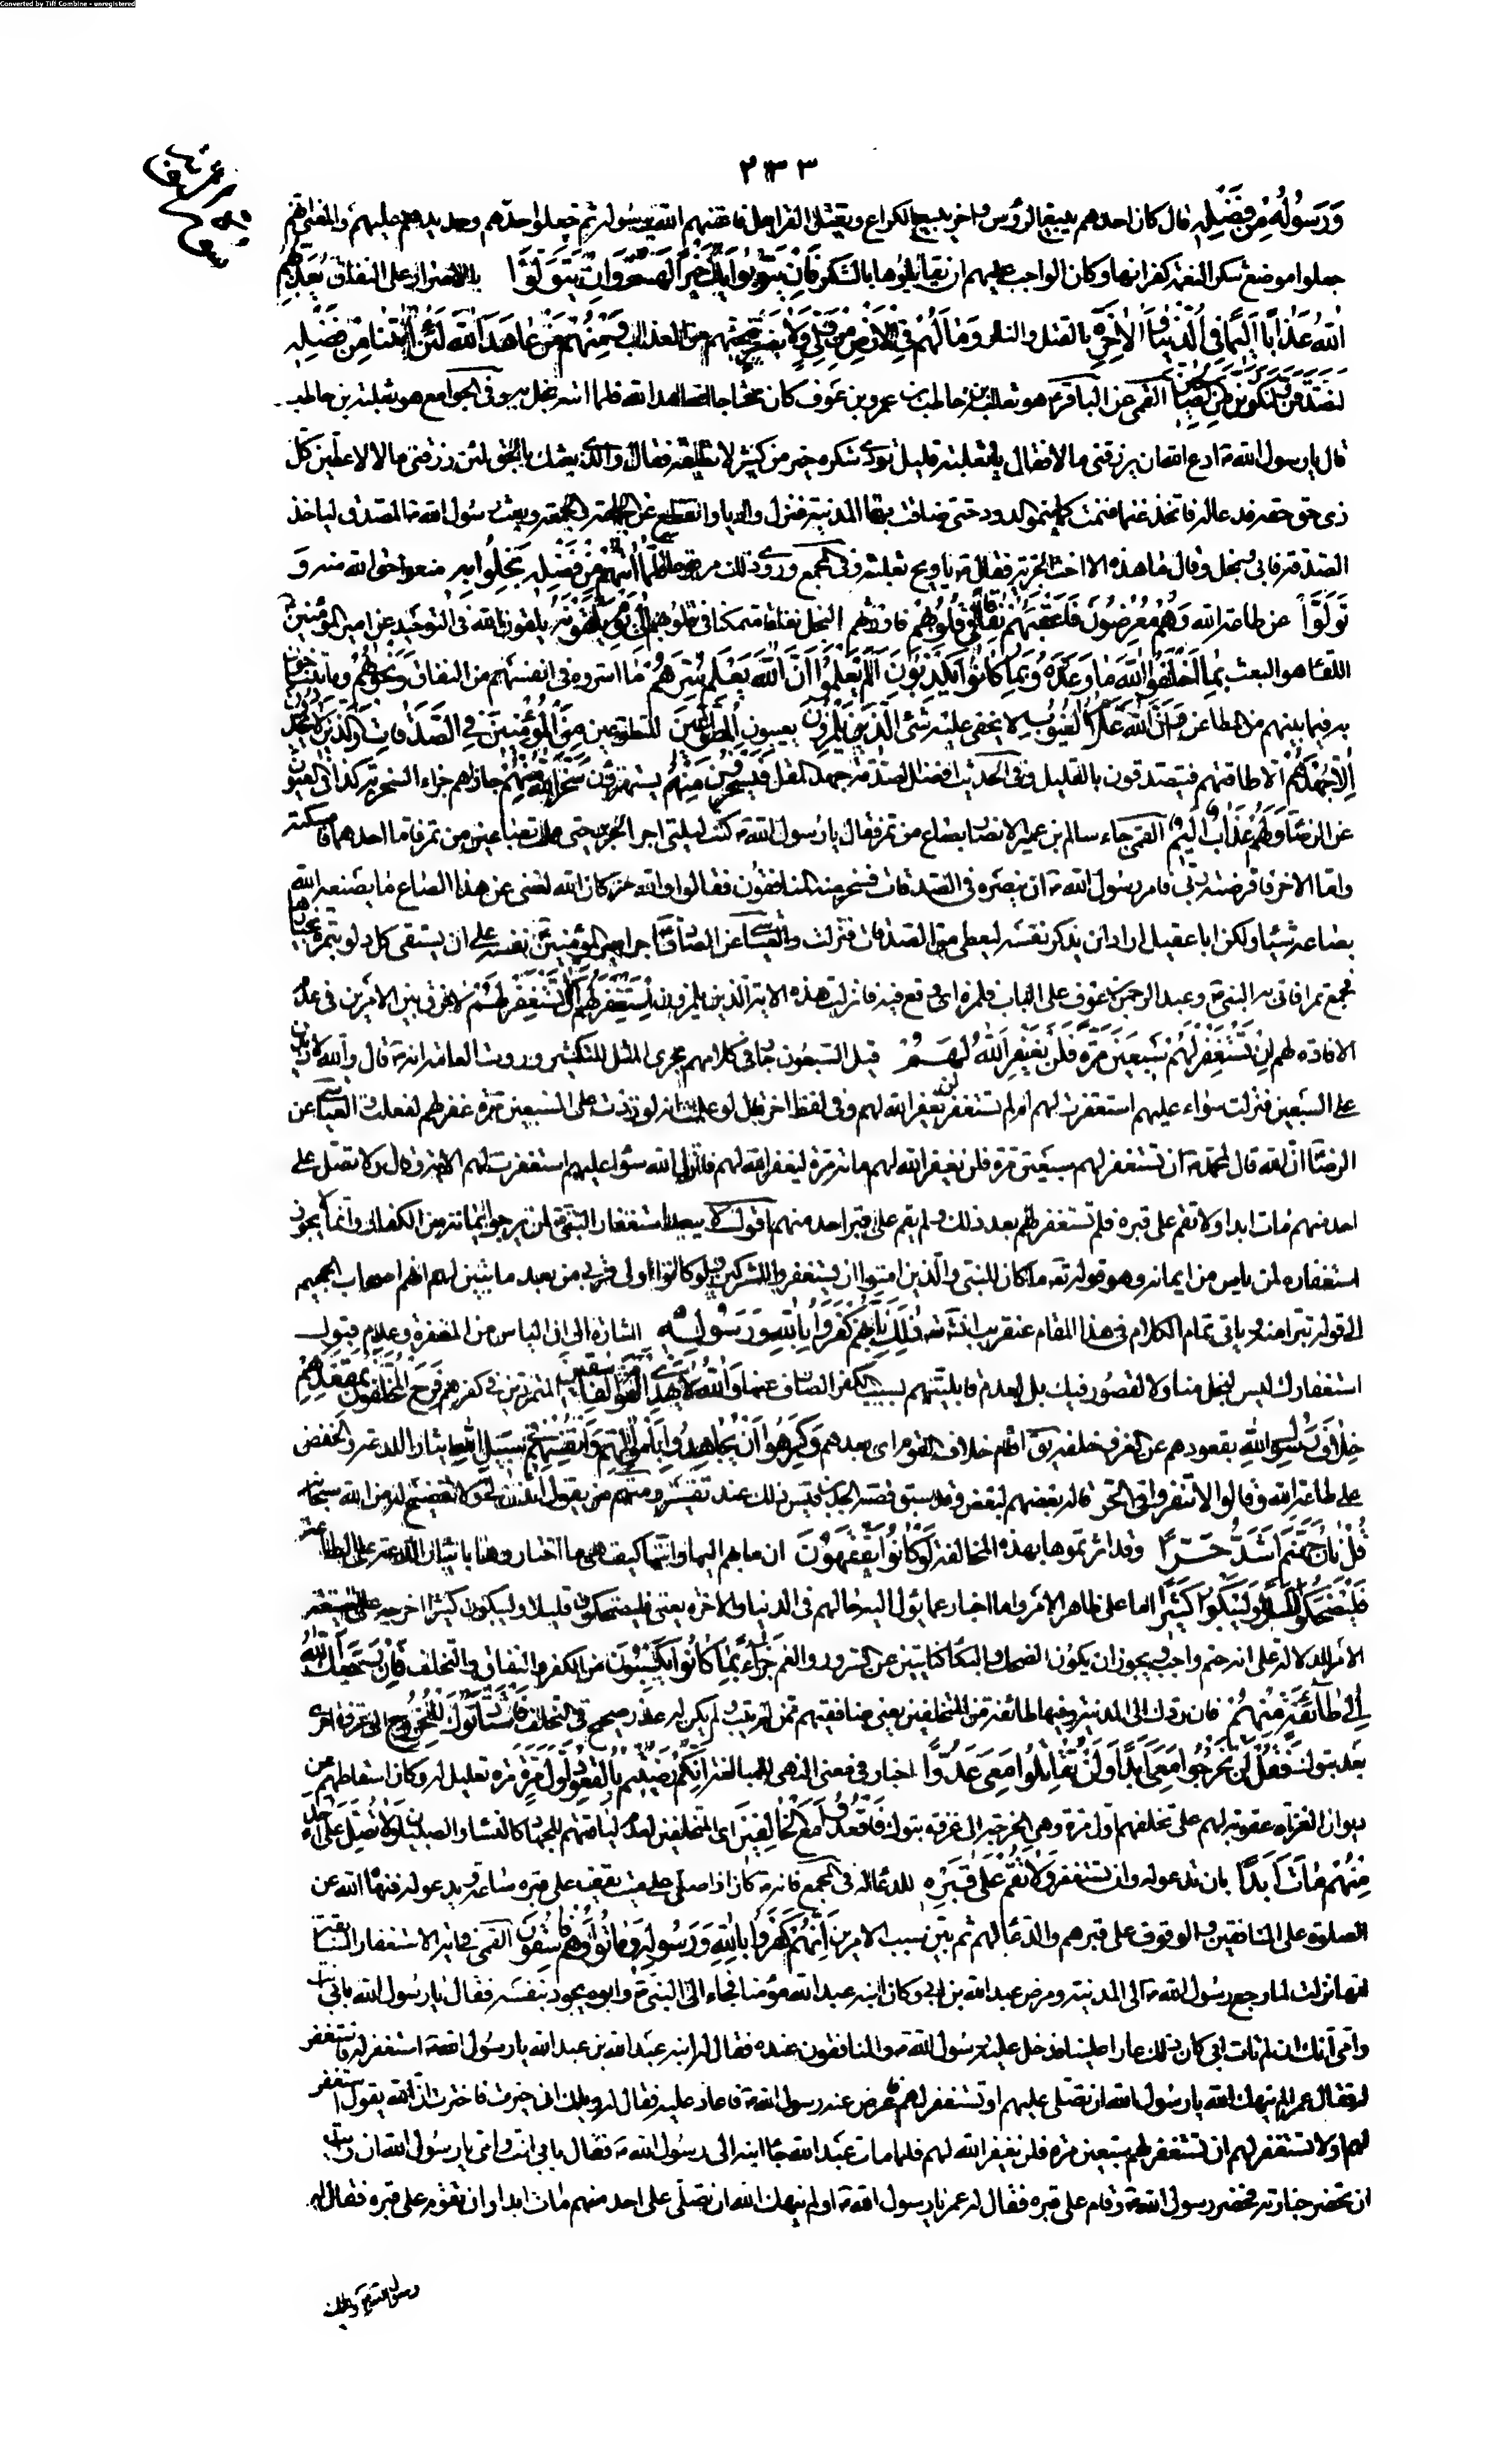 Converted by Tiff Combine - unregistered
٢٣٣
وَرَسُولُهُ مِنْ فَضْلِهِ قال كان احدهم يبيع الرؤس واخر يبيع الكراع ويفتل القرامل فاغناهم الله برسوله ثم جعلوا حدّهم وحديدهم عليهم والمعنى انهم
جعلوا موضع شكر النعمة كفرانها وكان الواجب عليهم ان يقابلوها بالشكر فَاِنْ يَتُوبُوا يَكُ خَيْرًا لَهُمْ وَاِنْ يَتَوَلَّوْا بالاصرار على النفاق يُعَذِّبْهُمُ
اللهُ عَذَابًا اَلِيمًا فِي الدُّنْيَا وَالْاٰخِرَةِ بالقتل والنار وَمَا لَهُمْ فِي الْاَرْضِ مِنْ وَلِيٍّ وَلَا نَصِيرٍ ينجيهم من العذاب وَمِنْهُمْ مَنْ عَاهَدَ اللهَ لَئِنْ اٰتٰنَا مِنْ فَضْلِهِ
لَنَصَّدَّقَنَّ وَلَنَكُونَنَّ مِنَ الصَّالِحِينَ القمى عن الباقر هو ثعلبة بن حاطب بن عمرو بن عوف كان محتاجا فعاهد الله فلما اتاه بخل به وفى الجوامع هو ثعلبة بن حاطب
قال يا رسول الله ادع الله ان يرزقنى مالا فقال يا ثعلبة قليل تؤدى شكره خير من كثير لا تطيقه فقال والذى بعثك بالحق لئن رزقنى مالا لاعطين كل
ذى حق حقه فدعا له فاتخذ غنما فنمت كما ينمو الدود حتى ضاقت بها المدينة فنزل واديا وانقطع عن الجماعة والجمعة وبعث رسول الله المصدق لياخذ
الصدقة فابى وبخل وقال ما هذه الا اخت الجزية فقال يا ويح ثعلبة وفى المجمع وروى ذلك مرفوعا فَلَمَّا اٰتٰهُمْ مِنْ فَضْلِهِ بَخِلُوا بِهِ منعوا حق الله منه وَ
تَوَلَّوْا عن طاعة الله وَهُمْ مُعْرِضُونَ فَاَعْقَبَهُمْ نِفَاقًا فِي قُلُوبِهِمْ فاورثهم البخل نفاقا متمكنا فى قلوبهم اِلٰى يَوْمِ يَلْقَوْنَهُ يلقون الله فى التوحيد عن امير المؤمنين
اللقاء هو البعث بِمَا اَخْلَفُوا اللهَ مَا وَعَدُوهُ وَبِمَا كَانُوا يَكْذِبُونَ اَلَمْ يَعْلَمُوا اَنَّ اللهَ يَعْلَمُ سِرَّهُمْ ما اسروه فى انفسهم من النفاق وَنَجْوٰيهُمْ وما يتناجون
به فيما بينهم من المطاعن وَاَنَّ اللهَ عَلَّامُ الْغُيُوبِ لا يخفى عليه شئ اَلَّذِينَ يَلْمِزُونَ يعيبون الْمُطَّوِّعِينَ المتطوعين مِنَ الْمُؤْمِنِينَ فِي الصَّدَقَاتِ وَالَّذِينَ لَا يَجِدُونَ
اِلَّا جُهْدَهُمْ الا طاقتهم فيتصدقون بالقليل وفى الحديث افضل الصدقة جهد المقل فَيَسْخَرُونَ مِنْهُمْ يستهزؤن سَخِرَ اللهُ مِنْهُمْ جازاهم جزاء السخرية كذا فى العيون
عن الرضا وَلَهُمْ عَذَابٌ اَلِيمٌ القمى جاء سالم بن عمير الانصارى بصاع من تمر فقال يا رسول الله كنت ليلتى اجر الجرير حتى نلت صاعين من تمر فاما احدهما فامسكته
واما الاخر فاقرضته ربى فامر رسول الله ان ينثره فى الصدقات فسخر منه المنافقون فقالوا والله ان كان الله لغنى عن هذا الصاع ما يصنع الله
بصاعه شيئا ولكن ابا عقيل اراد ان يذكر نفسه ليعطى من الصدقات فنزلت والعياشى عن الصادق اجر امير المؤمنين نفسه على ان يستقى كل دلو بتمرة يختارها
فجمع تمرا فاتى به النبى وعبد الرحمن بن عوف على الباب فلمزه اى وقع فيه فانزلت هذه الاية الذين يلمزون اِسْتَغْفِرْ لَهُمْ اَوْ لَا تَسْتَغْفِرْ لَهُمْ لا فرق بين الامرين فى عدم
الافادة لهم اِنْ تَسْتَغْفِرْ لَهُمْ سَبْعِينَ مَرَّةً فَلَنْ يَغْفِرَ اللهُ لَهُمْ قيل السبعون جار فى كلامهم مجرى المثل للتكثير وروت العامة انه قال والله لازيدن
على السبعين فنزلت سواء عليهم استغفرت لهم ام لم تستغفر لن يغفر الله لهم وفى لفظ اخر قال لو علمت انه لو زدت على السبعين مرة غفر لهم لفعلت والعياشى عن
الرضا ان الله قال لمحمد ان تستغفر لهم سبعين مرة فلن يغفر الله لهم مائة مرة ليغفر الله لهم فانزل الله سواء عليهم استغفرت لهم الاية وقال ولا تصل على
احد منهم مات ابدا ولا تقم على قبره فلم تستغفر لهم بعد ذلك ولم يقم على قبر احد منهم اقول لا يبعد استغفار النبى لمن يرجو ايمانه من الكفار وانما لا يجوز
استغفاره لمن يأس من ايمانه وهو قوله تعه ما كان للنبى والذين امنوا ان يستغفروا للمشركين ولو كانوا اولى قربى من بعد ما تبين لهم انهم اصحاب الجحيم
الى قوله تبرأ منه وياتى تمام الكلام فى هذا المقام عنقريب انشه ذٰلِكَ بِاَنَّهُمْ كَفَرُوا بِاللهِ وَرَسُولِهِ اشارة الى ان اليأس من المغفرة وعدم قبول
استغفارك ليس لبخل منا ولا لقصور فيك بل لعدم قابليتهم بسبب الكفر الصارف عنها وَاللهُ لَا يَهْدِي الْقَوْمَ الْفَاسِقِينَ المتمردين فى كفرهم فَرِحَ الْمُخَلَّفُونَ بِمَقْعَدِهِمْ
خِلَافَ رَسُولِ اللهِ بقعودهم عن الغزو خلفه يق اقام خلاف القوم اى بعدهم وَكَرِهُوا اَنْ يُجَاهِدُوا بِاَمْوَالِهِمْ وَاَنْفُسِهِمْ فِي سَبِيلِ اللهِ ايثارا للدعة والخفض
على طاعة الله وَقَالُوا لَا تَنْفِرُوا فِي الْحَرِّ قاله بعضهم لبعض وقد سبق قصة الجد بن قيس ذلك عند تفسير ومنهم من يقول ائذن لى ولا تفتنى من الله سبحانه
قُلْ نَارُ جَهَنَّمَ اَشَدُّ حَرًّا وقد اثرتموها بهذه المخالفة لَوْ كَانُوا يَفْقَهُونَ ان مابهم اليها وانها كيف هى ما اختاروها بايثار الدعة على الطاعة
فَلْيَضْحَكُوا قَلِيلًا وَلْيَبْكُوا كَثِيرًا اما على ظاهر الامر واما اخبار عما يؤل اليه حالهم فى الدنيا والاخرة يعنى فليضحكون قليلا وليبكون كثيرا اخرجه على صيغة
الامر للدلالة على انه حتم واجب ويجوز ان يكون الضحك والبكاء كنايتين عن السرور والغم جَزَاءً بِمَا كَانُوا يَكْسِبُونَ من الكفر والنفاق والتخلف فَاِنْ رَجَعَكَ اللهُ
اِلٰى طَائِفَةٍ مِنْهُمْ فان ردك الى المدينة وفيها طائفة من المتخلفين يعنى منافقيهم ممن لم يتب ولم يكن له عذر صحيح فى التخلف فَاسْتَأْذَنُوكَ لِلْخُرُوجِ الى غزوة اخرى
بعد تبوك فَقُلْ لَنْ تَخْرُجُوا مَعِيَ اَبَدًا وَلَنْ تُقَاتِلُوا مَعِيَ عَدُوًّا اخبار فى معنى النهى للمبالغة اِنَّكُمْ رَضِيتُمْ بِالْقُعُودِ اَوَّلَ مَرَّةٍ تعليل له وكان اسقاطهم عن
ديوان الغزاة عقوبة لهم على تخلفهم اول مرة وهى الخرجة الى غزوة تبوك فَاقْعُدُوا مَعَ الْخَالِفِينَ اى المتخلفين لعدم لياقتهم للجهاد كالنساء والصبيان وَلَا تُصَلِّ عَلٰى اَحَدٍ
مِنْهُمْ مَاتَ اَبَدًا بان تدعو له وان تستغفر وَلَا تَقُمْ عَلٰى قَبْرِهِ للدعاء له فى المجمع فانه كان اذا صلى على ميت يقف على قبره ساعة ويدعو له فنهاه الله عن
الصلوة على المنافقين والوقوف على قبرهم والدعاء لهم ثم بين سبب الامرين اِنَّهُمْ كَفَرُوا بِاللهِ وَرَسُولِهِ وَمَاتُوا وَهُمْ فَاسِقُونَ القمى فى اية الاستغفار السابقة
انها نزلت لما رجع رسول الله الى المدينة ومرض عبد الله بن ابى وكان ابنه عبد الله مؤمنا فجاء الى النبى وابوه يجود بنفسه فقال يا رسول الله بابى انت
وامى انك ان لم تات ابى كان ذلك عارا علينا فدخل عليه رسول الله والمنافقون عنده فقال له ابنه عبد الله بن عبد الله يا رسول الله استغفر له فاستغفر
له فقال عمر الم ينهك الله يا رسول الله ان تصلى عليهم او تستغفر لهم فاعرض عنه رسول الله فاعاد عليه فقال له ويلك انى خيرت فاخترت ان الله يقول استغفر
لهم او لا تستغفر لهم ان تستغفر لهم سبعين مرة فلن يغفر الله لهم فلما مات عبد الله جاء ابنه الى رسول الله فقال بابى انت وامى يا رسول الله ان رايت
ان تحضر جنازته فحضر رسول الله وقام على قبره فقال له عمر يا رسول الله اولم ينهك الله ان تصلى على احد منهم مات ابدا وان تقوم على قبره فقال له
رسول الله ويلك